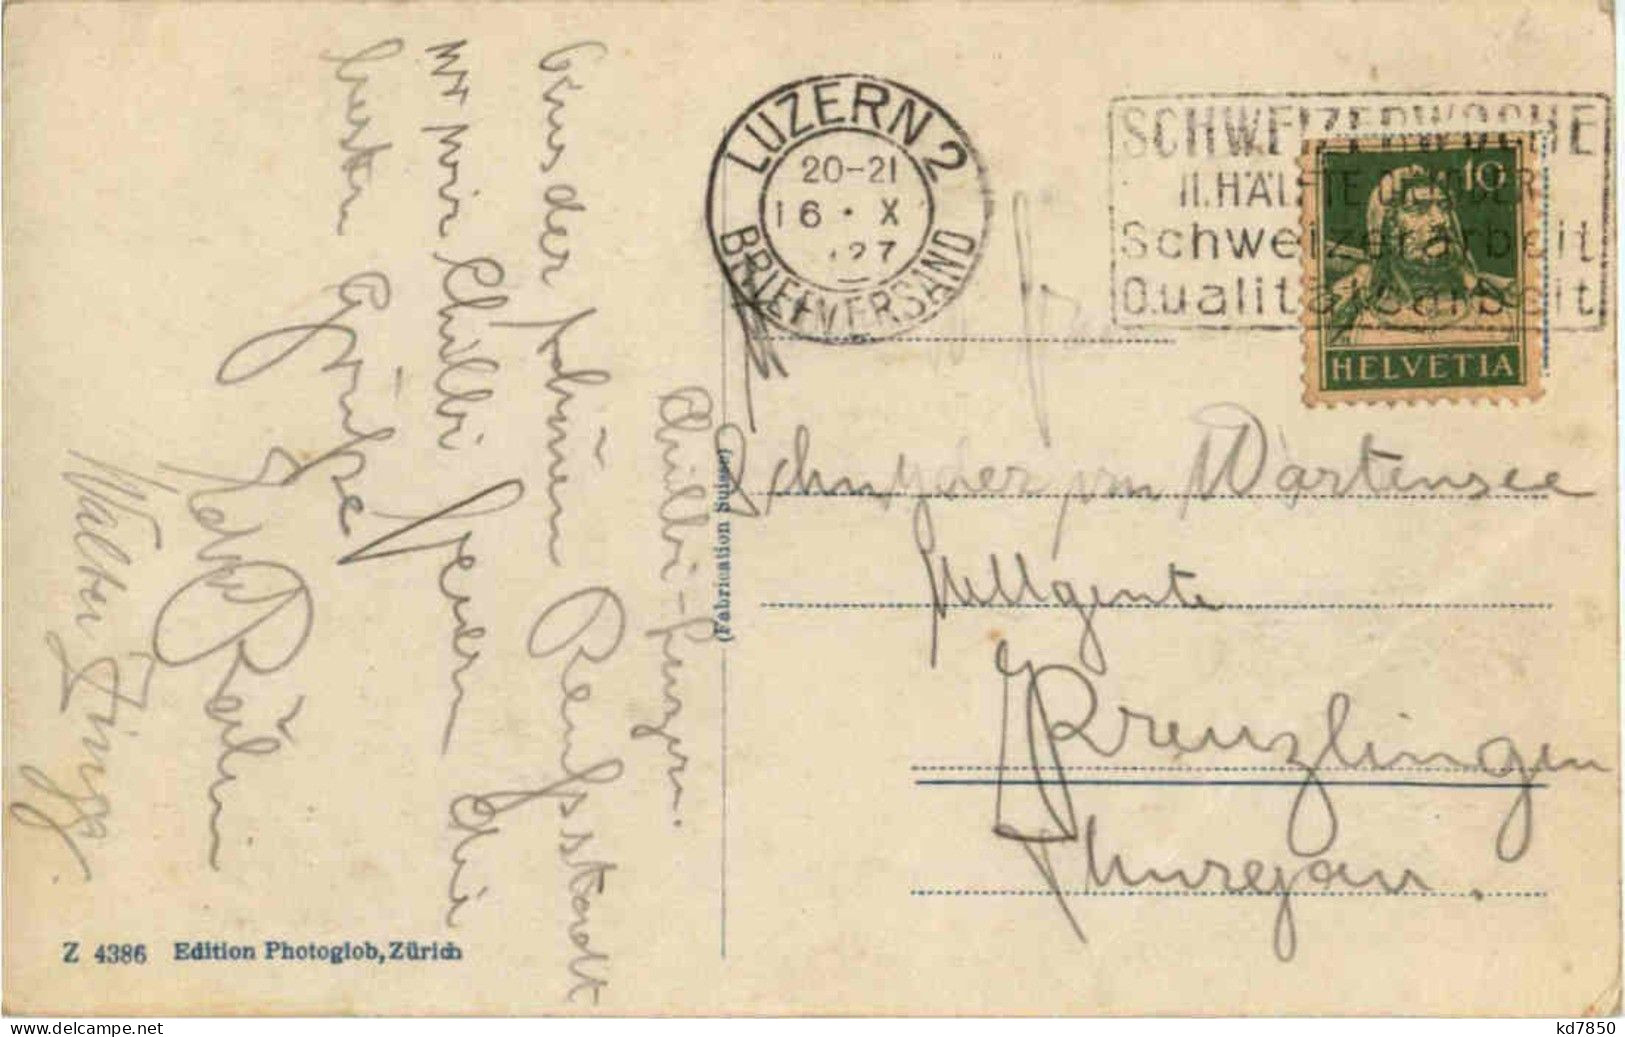 LUZERN 2
20-21
16. X
27
BRIEFVERSAND
SCHWEIZERWOCHE
II. HÄLFTE OKTOBER
Schweizerarbeit
Qualitätsarbeit
10
HELVETIA
Chilbi-Luzern.
Aus der schönen Reussstadt
wo wir Chilbi feiern die
besten Grüsse
Walter Zingg.
Schnyder von Wartensee
Kreuzlingen
Thurgau.
(Fabrication Suisse)
Z 4386 Edition Photoglob, Zürich
www.delcampe.net
kd7850